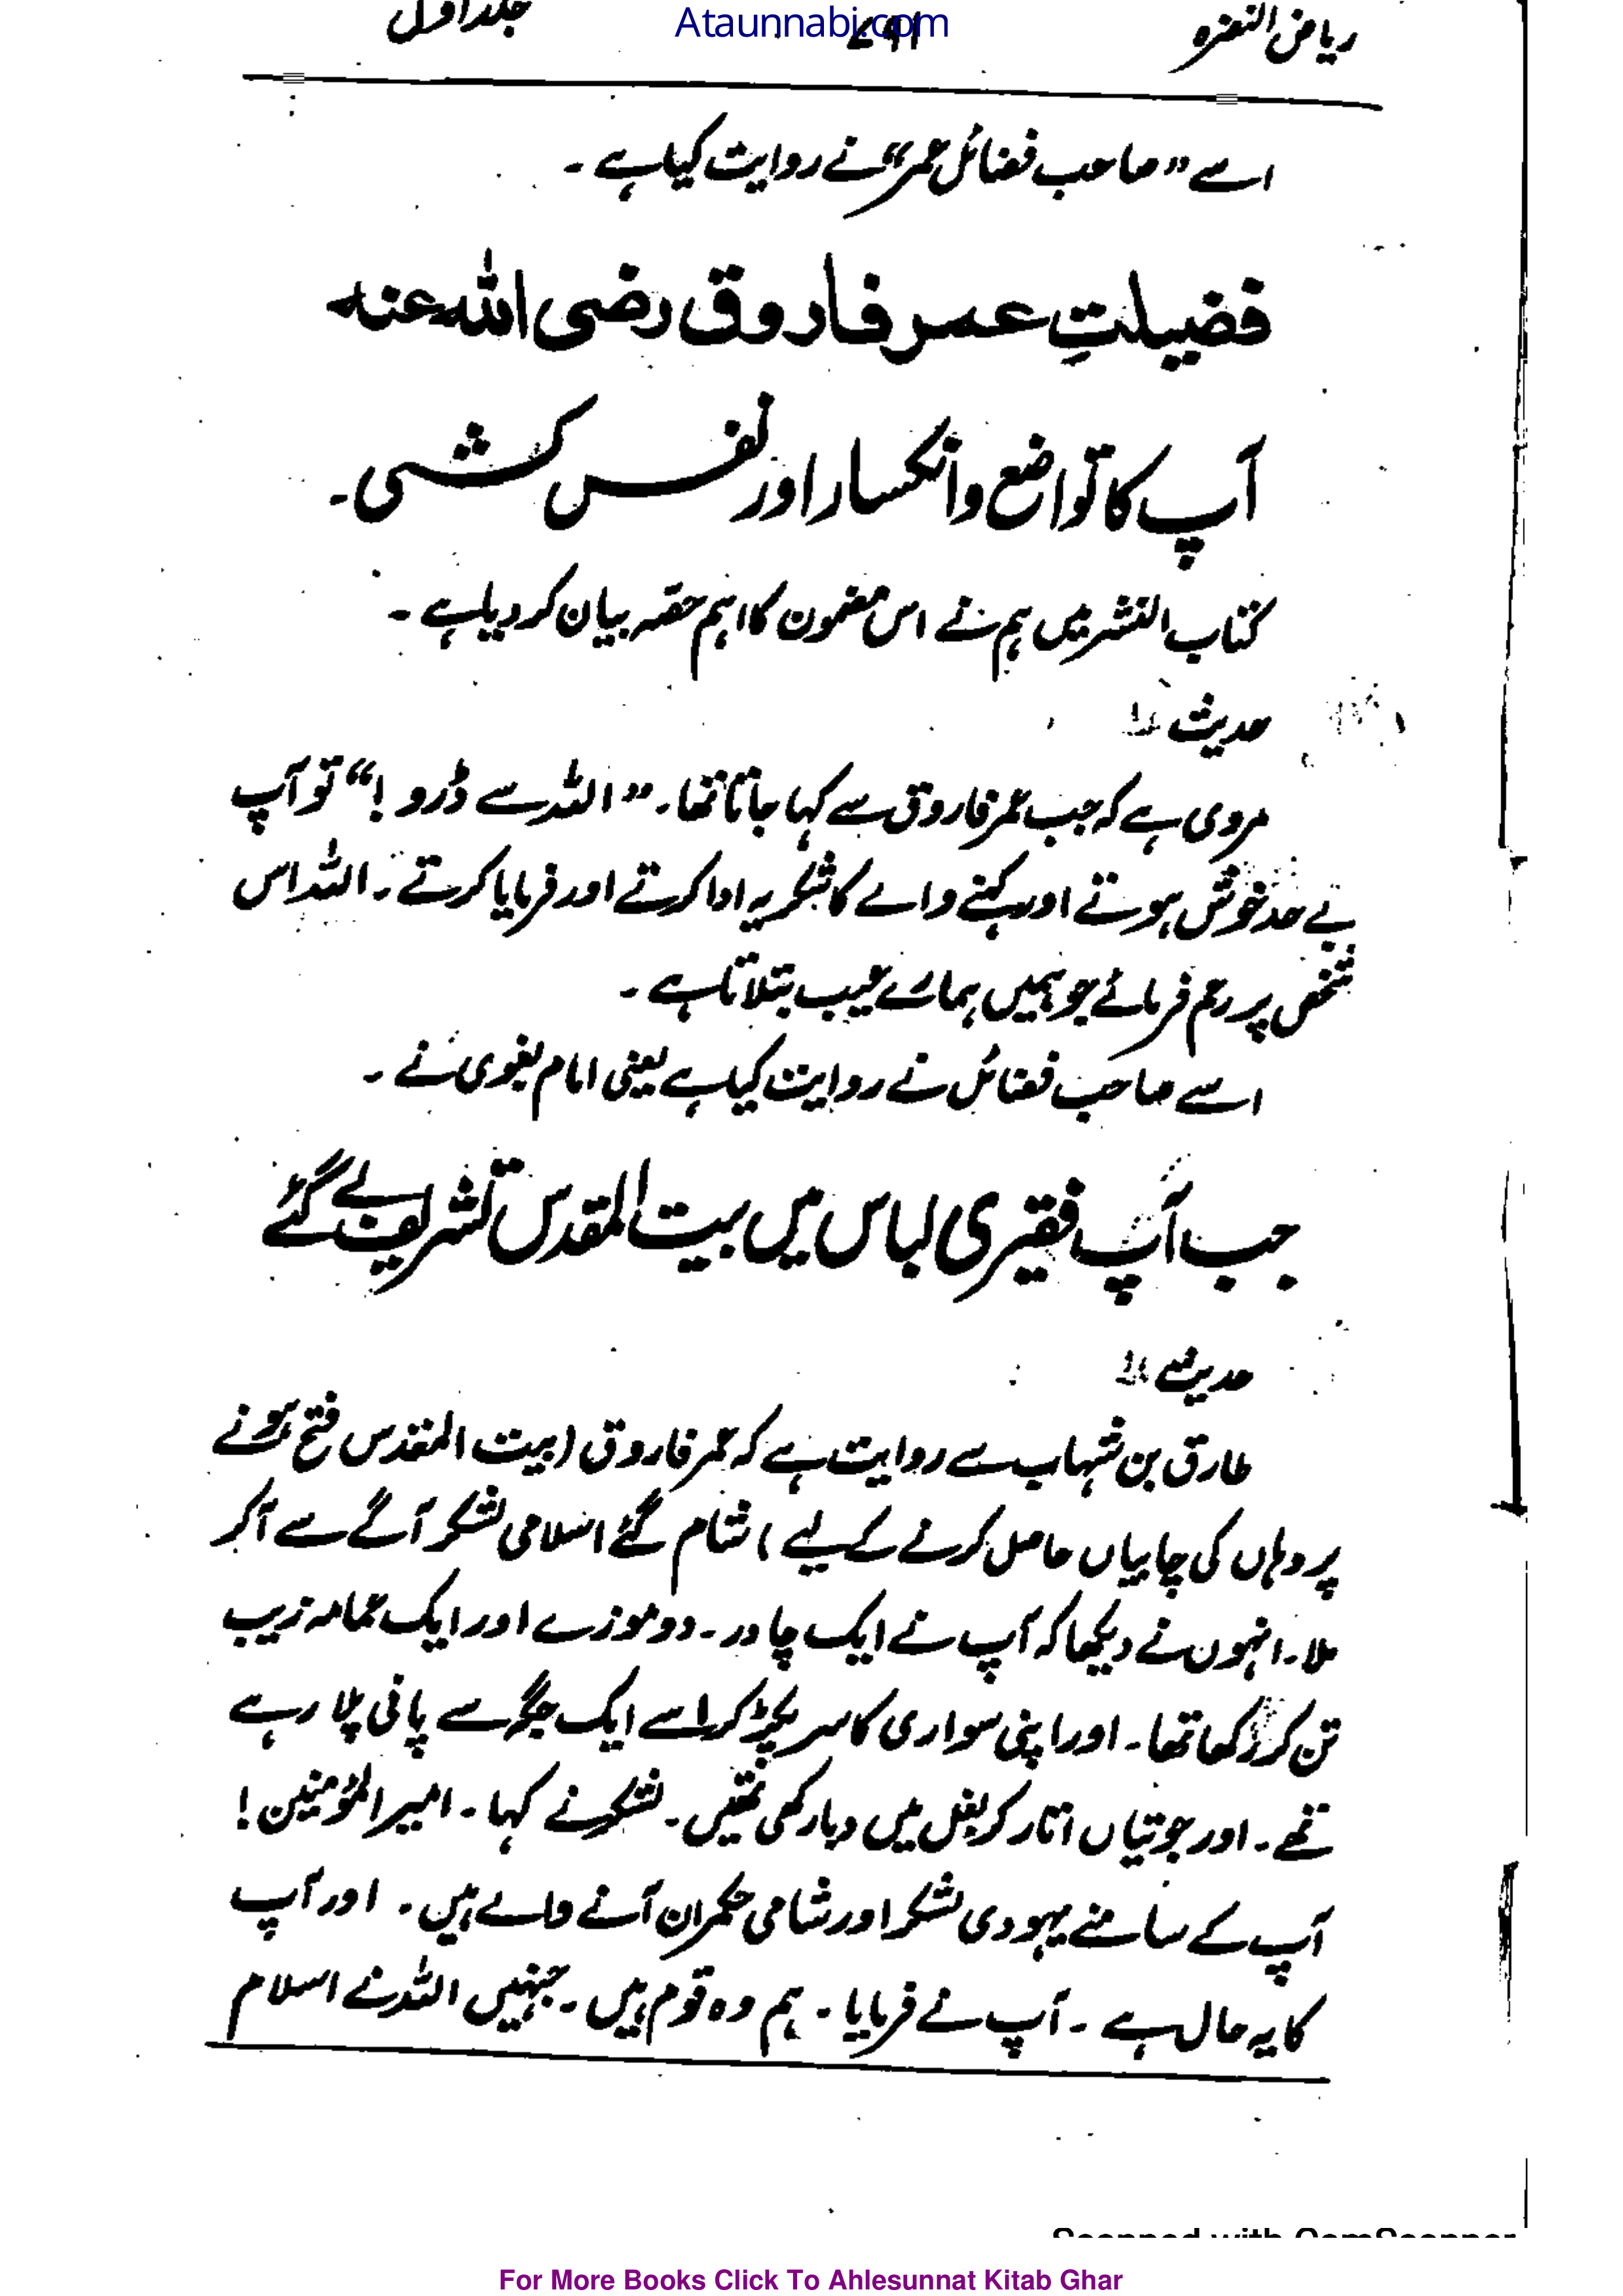 ریاض النضرہ
Ataunnabi.com
جلد اول
اسے "صاحب فضائل عمر" نے روایت کیا ہے ۔
فضیلتِ عمر فاروق رضی اللہ عنہ
آپ کا تواضع وانکسار اور نفس کشی ۔
کتاب النشر میں ہم نے اس مضمون کا اہم حصّہ بیان کر دیا ہے ۔
حدیث
مروی ہے کہ جب عمر فاروق سے کہا جاتا تھا۔ "اللہ سے ڈرو!" تو آپ
بے حد خوش ہوتے اور کہنے والے کا شکریہ ادا کرتے اور فرمایا کرتے۔ اللہ اس
شخص پر رحم فرمائے جو ہمیں ہمارے عیب بتلاتا ہے ۔
اسے صاحب فضائل نے روایت کیا ہے یعنی امام بغوی نے ۔
جب آپ فقیری لباس میں بیت المقدس تشریف لے گئے
حدیث
طارق بن شہاب سے روایت ہے کہ عمر فاروق (بیت المقدس فتح ہونے
پر وہاں کی چابیاں حاصل کرنے کے لیے) شام گئے اسلامی لشکر آگے سے آکر
ملا۔ انہوں نے دیکھا کہ آپ نے ایک چادر۔ دو موزے اور ایک عمامہ زیب
تن کر رکھا تھا۔ اور اپنی سواری کا سر پکڑ کر اسے ایک جگہ سے پانی پلا رہے
تھے۔ اور جوتیاں اتار کر بغل میں دبا رکھی تھیں۔ لشکر نے کہا۔ امیر المؤمنین!
آپ کے سامنے یہودی لشکر اور شامی حکمران آنے والے ہیں۔ اور آپ
کا یہ حال ہے ۔ آپ نے فرمایا۔ ہم وہ قوم ہیں۔ جنہیں اللہ نے اسلام
Scanned with CamScanner
For More Books Click To Ahlesunnat Kitab Ghar